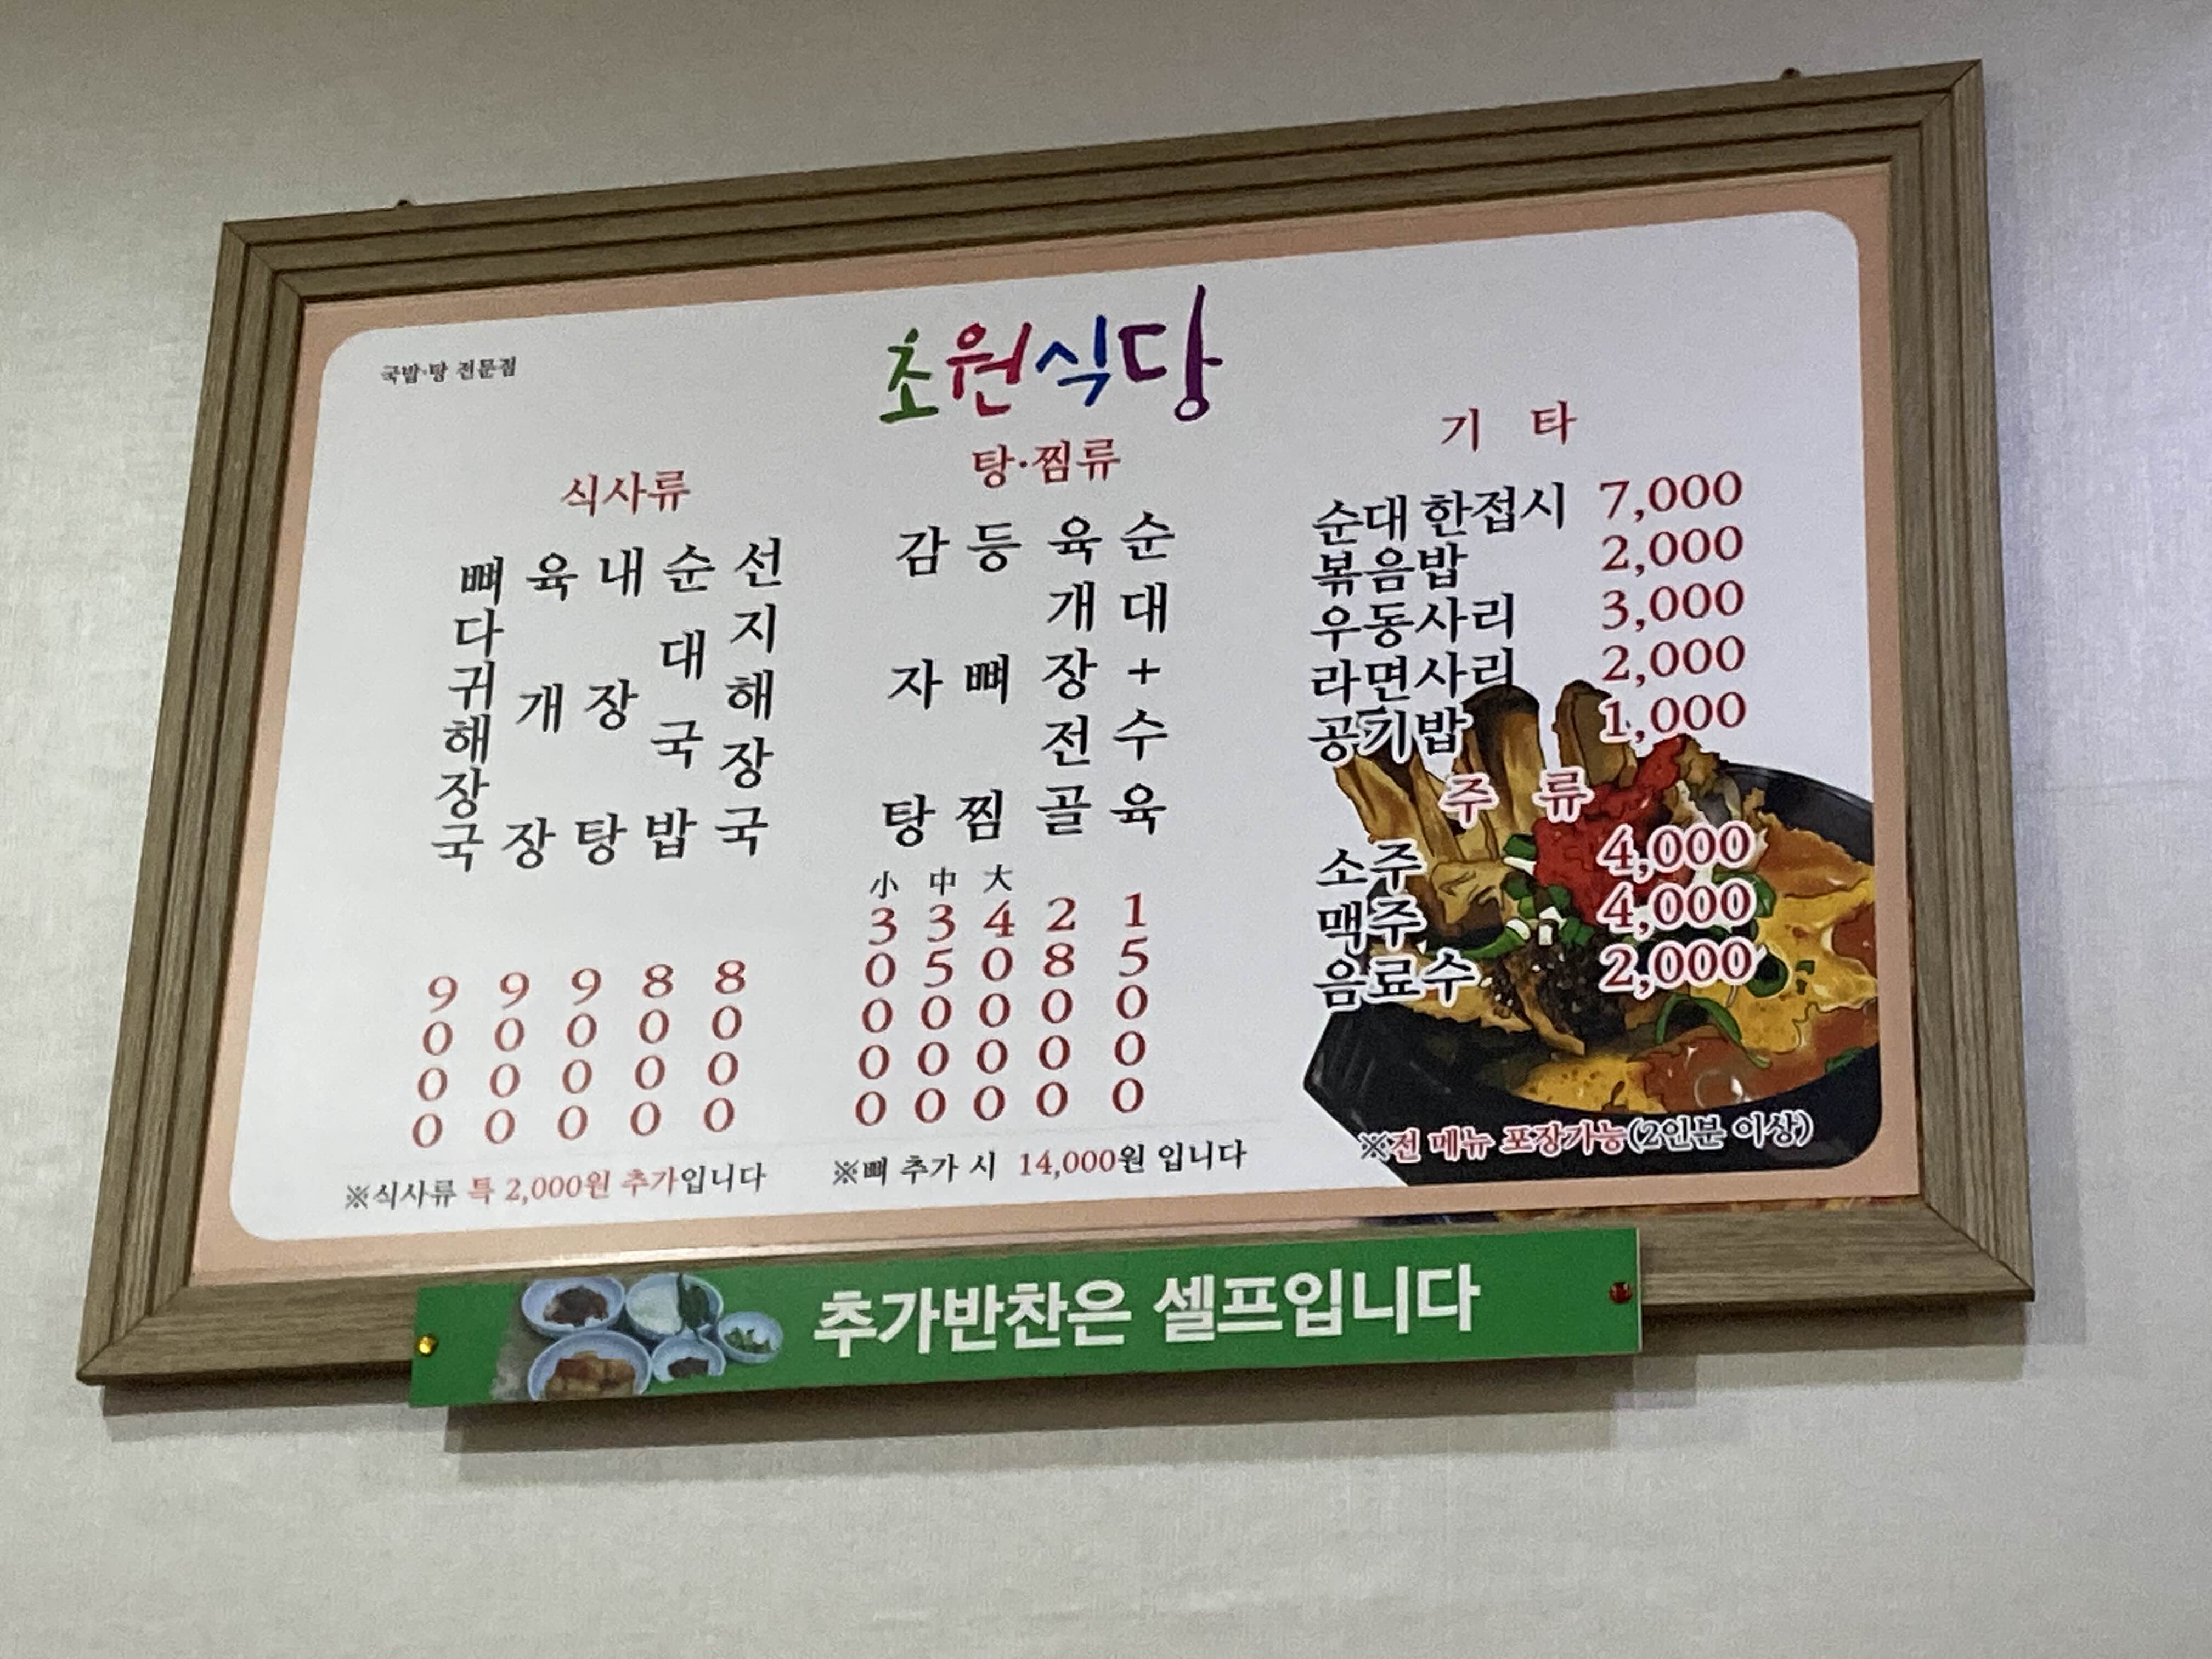 국밥·탕 전문점
초원식당
식사류
뼈다귀해장국 9000
육개장 9000
내장탕 9000
순대국밥 8000
선지해장국 8000
※식사류 특 2,000원 추가입니다
탕·찜류
감자탕
등뼈찜
小 30000
中 35000
大 40000
육개장전골 28000
순대+수육 15000
※뼈 추가 시 14,000원 입니다
기 타
순대 한접시 7,000
볶음밥 2,000
우동사리 3,000
라면사리 2,000
공기밥 1,000
주 류
소주 4,000
맥주 4,000
음료수 2,000
※전 메뉴 포장가능(2인분 이상)
추가반찬은 셀프입니다